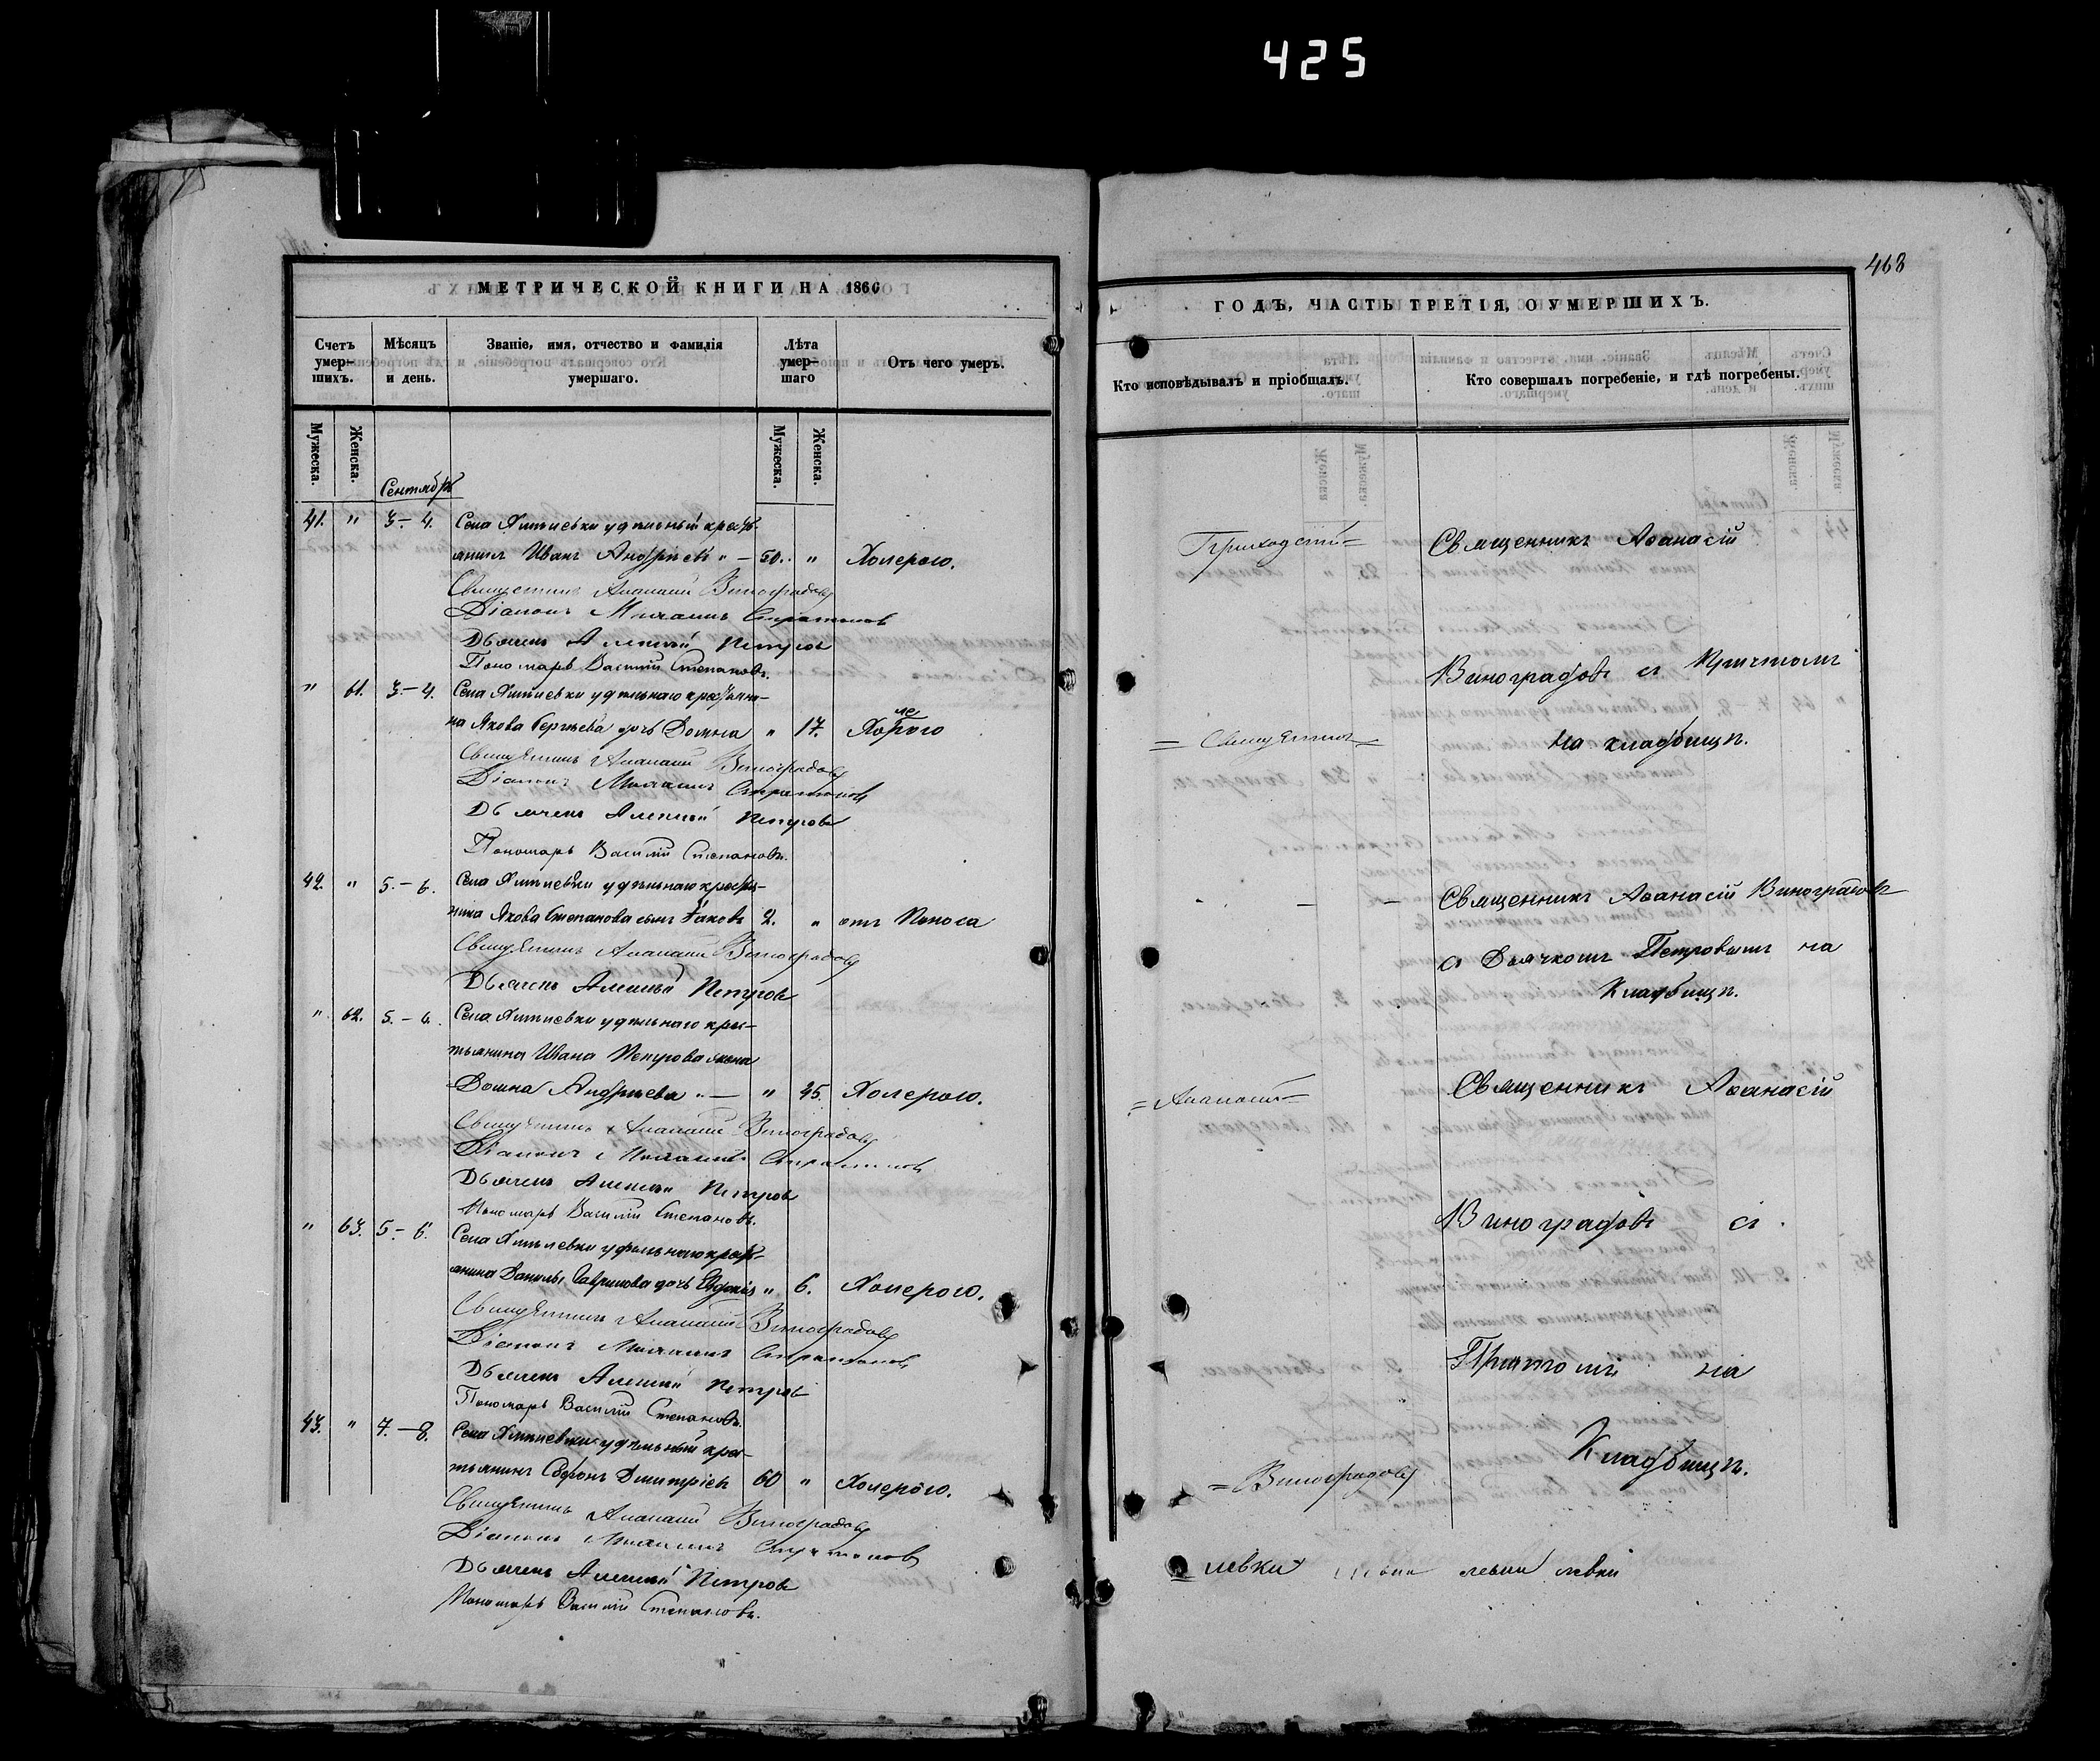 425
468
МЕТРИЧЕСКОЙ КНИГИ НА 1866
Счетъ умер-шихъ.
Мѣсяцъ и день.
Званіе, имя, отчество и фамилія умершаго.
Лѣта умер-шаго
Отъ чего умеръ.
Мужеска.
Женска.
Мужеска.
Женска.
Сентябрь
41. " 3-4. Села удѣльный кресть-
янинъ Иванъ Андреевъ " — 50. " Холерою.
Священникъ Аѳанасій Виноградовъ
Діаконъ Стратоновъ
Дьячекъ Алексѣй Петровъ
Пономарь Василій Степановъ.
" 61. 3-4. Села удѣльнаго крестьяни-
на Якова Сергѣева дочь Домна " 17. Холерою
Священникъ Аѳанасій Виноградовъ
Діаконъ Стратоновъ
Дьячекъ Алексѣй Петровъ
Пономарь Василій Степановъ.
42. " 5.-6. Села удѣльнаго крестья-
нина Якова Степанова сынъ Іаковъ 2. " отъ Поноса
Священникъ Аѳанасій Виноградовъ
Дьячекъ Алексѣй Петровъ
" 62. 5.-6. Села удѣльнаго крес-
тьянина Ивана Петрова жена
Домна Андреева " — " 45. Холерою.
Священникъ Аѳанасій Виноградовъ
Діаконъ Стратоновъ
Дьячекъ Алексѣй Петровъ
Пономарь Василій Степановъ.
" 63. 5-6. Села удѣльнаго крест-
янина Данилы Гаврилова дочь Евдокія " 6. Холерою.
Священникъ Аѳанасій Виноградовъ
Діаконъ Стратоновъ
Дьячекъ Алексѣй Петровъ
Пономарь Василій Степановъ.
43. " 7.-8. Села удѣльный крес-
тьянинъ Софонъ Дмитріевъ 60 " Холерою.
Священникъ Аѳанасій Виноградовъ
Діаконъ Стратоновъ
Дьячекъ Алексѣй Петровъ
Пономарь Василій Степановъ.
ГОДЪ, ЧАСТЬ ТРЕТІЯ, О УМЕРШИХЪ.
Кто исповѣдывалъ и пріобщалъ.
Кто совершалъ погребеніе, и гдѣ погребены.
Приходскій= Священникъ Аѳанасій
Виноградовъ съ Причтомъ
= Священникъ= на кладбищѣ.
- - Священникъ Аѳанасій Виноградовъ
съ Дьячкомъ Петровымъ на
Кладбищѣ.
= Аѳанасій= Священникъ Аѳанасій
Виноградовъ съ
Притомъ на
Кладбищѣ.
= Виноградовъ